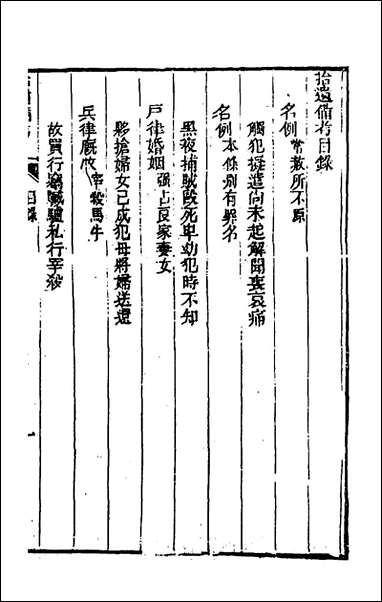 拾遺備考目錄
名例 常赦所不原
觸犯擬遣尚未起解聞喪哀痛
名例 本條別有罪名
黑夜捕賊毆死卑幼犯時不知
戶律婚姻 强占良家妻女
夥搶婦女已成犯母將婦送還
兵律廐牧 宰殺馬牛
故買行竊贓驢私行宰殺
目錄
一